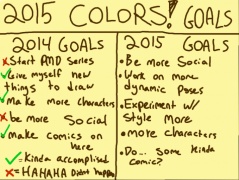 2015 COLORS! GOALS
2014 GOALS
Start PMD Series
Give myself new
things to draw
Make more characters
be more Social
make comics on
here
= Kinda accomplised
= HAHAHA Didnt happen
2015 GOALS
• Be more Social
• Work on more
dynamic Poses
• Experiment w/
Style More
• more characters
• Do... Some kinda
comic?